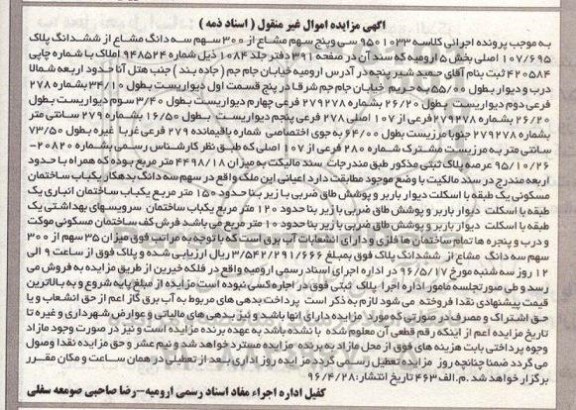 آگهی مزایده اموال غیر منقول ( اسناد ذمه )
به موجب پرونده اجرائی کلاسه ۹۵۰۱۰۳۳ سی وپنج سهم مشاع از ۳۰۰ سهم سه دانگ مشاع از ششدانگ پلاک
۱۰۷/۶۹۵ اصلی بخش ۵ ارومیه که سند آن در صفحه ۳۹۱ دفتر جلد ۱۰۸۴ ذیل شماره ۹۴۸۵۲۴ املاک با شماره چاپی
۴۲۰۵۸۴ ثبت بنام آقای حمید شیر پنجه در آدرس ارومیه خیابان جام جم ( جاده بند ) جنب هتل آنا حدود اربعه شمالا
درب و دیوار بطول ۵۵/۰۰ به حریم خیابان جام جم شرقا در پنج قسمت اول دیواریست بطول ۳۴/۱۰ بشماره ۲۷۸
فرعی دوم دیواریست بطول ۲۶/۲۰ بشماره ۲۷۹۲۷۸ فرعی چهارم دیواریست بطول ۳/۴۰ سوم دیواریست بطول
۲۶/۲۰ بشماره ۲۷۹۲۷۸ فرعی از ۱۰۷ اصلی ۲۷۸ فرعی پنجم دیواریست بطول ۱۶/۵۰ بشماره ۲۷۹ سانتی متر
بشماره ۲۷۹۲۷۸ جنوبا مرزیست بطول ۶۴/۰۰ به جوی اختصاصی شماره باقیمانده ۲۷۹ فرعی غربا غیره بطول ۷۳/۵۰
سانتی متر به مرزیست مشترک شماره ۲۸۰ فرعی از ۱۰۷ اصلی که طبق نظر کارشناس رسمی بشماره ۲۰۸۲۰-
۹۵/۱۰/۲۶ عرصه پلاک ثبتی مذکور طبق مندرجات سند مالکیت به میزان ۴۴۹۸/۱۸ متر مربع بوده که همراه با حدود
اربعه مندرج در سند مالکیت با وضع موجود مطابقت دارد اعیانی این ملک واقع در سه دانگ بدهکار یکباب ساختمان
مسکونی یک طبقه با اسکلت دیوار باربر و پوشش طاق ضربی با زیر بنا حدود ۱۵۰ متر مربع یکباب ساختمان انباری یک
طبقه با اسکلت دیوار باربر و پوشش طاق ضربی با زیر بنا حدود ۱۲۰ متر مربع یکباب ساختمان سرویسهای بهداشتی یک
طبقه با اسکلت دیوار باربر و پوشش طاق ضربی با زیر بنا حدود ۱۰ متر مربع می باشد فرش کف ساختمان مسکونی موکت
و درب و پنجره ها تمام ساختمان ها فلزی و دارای انشعابات آب برق است که با توجه به مراتب فوق میزان ۳۵ سهم از ۳۰۰
سهم سه دانگ مشاع از ششدانگ پلاک فوق بمبلغ ۳/۵۴۲/۲۹۱/۶۶۶ ریال ارزیابی شده و پلاک فوق از ساعت ۹ الی
۱۲ روز سه شنبه مورخ ۹۶/۵/۱۷ در اداره اجرای اسناد رسمی ارومیه واقع در فلکه خیرین از طریق مزایده به فروش می
رسد و طی صورتجلسه مامور اداره اجرا پلاک ثبتی فوق در اجاره کسی نبوده است مزایده از مبلغ پایه شروع و به بالاترین
قیمت پیشنهادی نقدا فروخته می شود لازم به ذکر است پرداخت بدهی های مربوط به آب برق گاز اعم از حق انشعاب و یا
حق اشتراک و مصرف در صورتی که مورد مزایده دارای آنها باشد و نیز بدهی های مالیاتی و عوارض شهرداری و غیره تا
تاریخ مزایده اعم از اینکه رقم قطعی آن معلوم شده یا نشده باشد به عهده برنده مزایده است و نیز در صورت وجود مازاد
وجوه پرداختی بابت هزینه های فوق از محل مازاد به برنده مزایده مسترد خواهد شد و نیم عشر و حق مزایده نقدا وصول
می گردد ضمنا چنانچه روز مزایده تعطیل رسمی گردد مزایده روز اداری بعد از تعطیلی در همان ساعت و مکان مقرر
برگزار خواهد شد . م.الف ۴۶۳ تاریخ انتشار: ۹۶/۴/۲۸
کفیل اداره اجراء مفاد اسناد رسمی ارومیه-رضا صاحبی صومعه سفلی